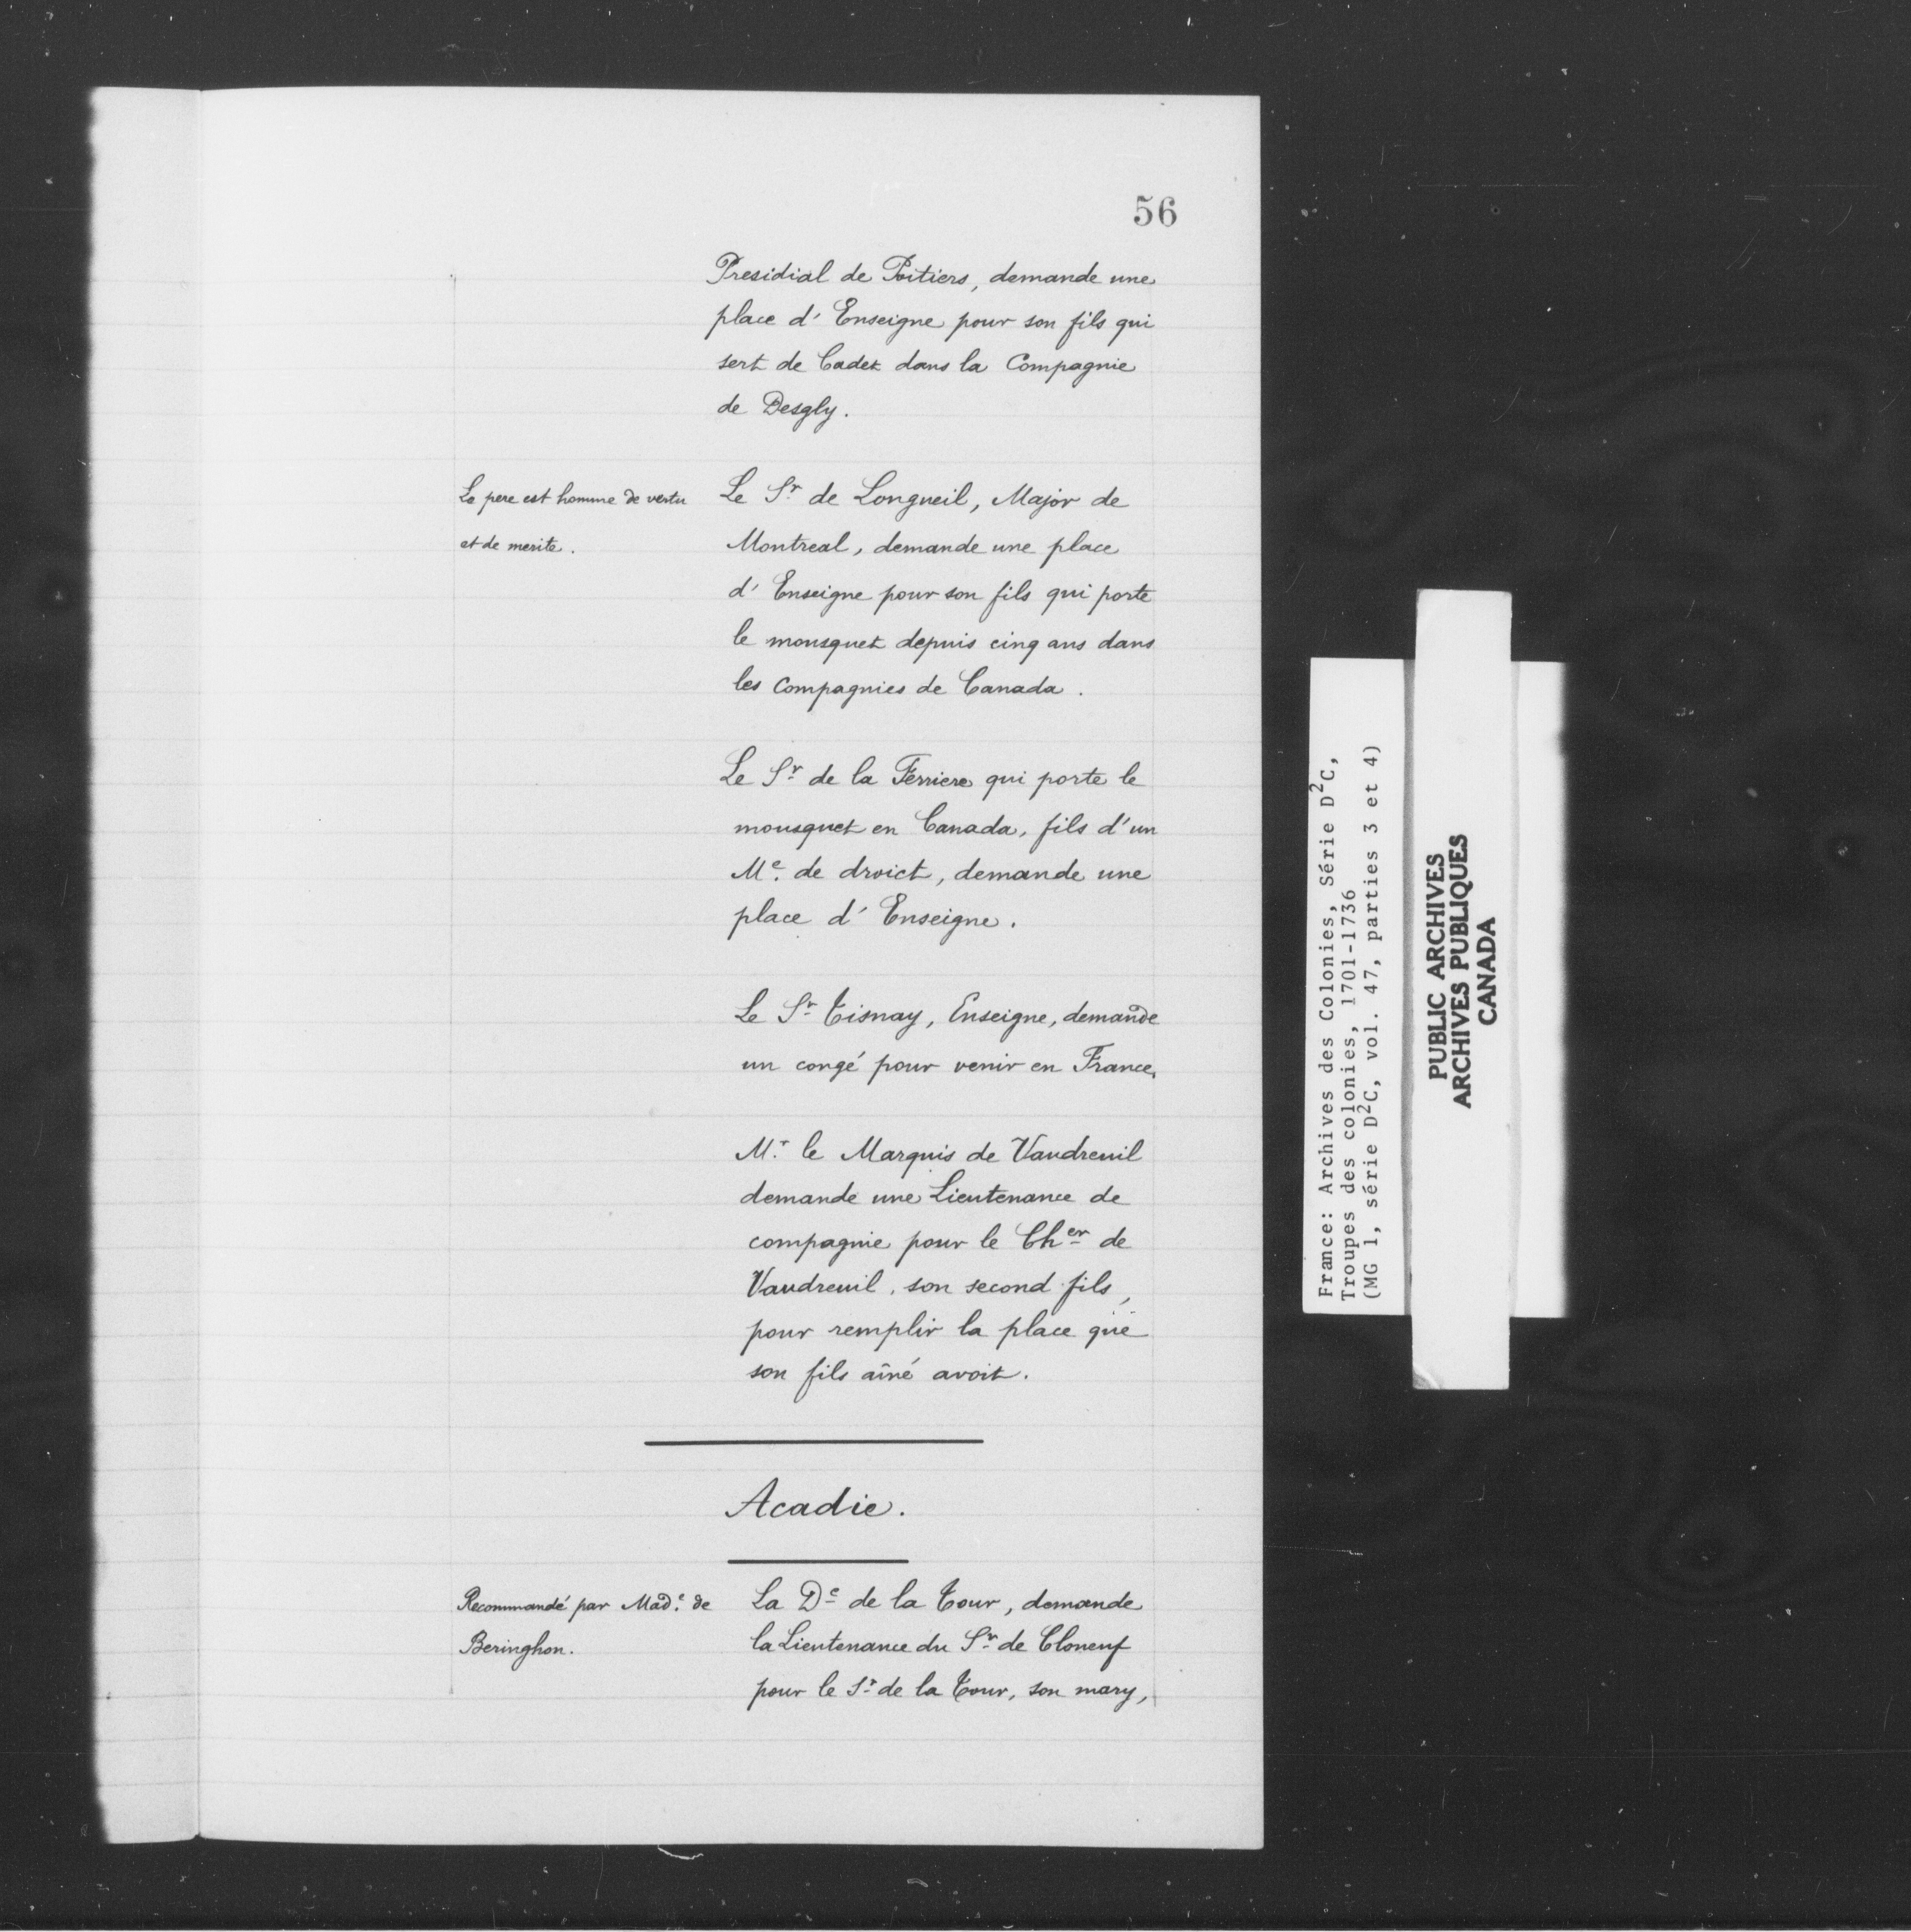 56
Presidial de Poitiers, demande une
place d'Enseigne pour son fils qui
sert de Cadet dans la Compagnie
de Desgly.
Le pere est homme de vertu
et de merite.
Le Sr de Longueil, Major de
Montreal, demande une place
d'Enseigne pour son fils qui porte
le mousquet depuis cinq ans dans
les Compagnies de Canada.
Le Sr de la Ferriere qui porte le
mousquet en Canada, fils d'un
Me. de droict, demande une
place d'Enseigne.
Le Sr Tisnay, Enseigne, demande
un congé pour venir en France.
Mr. le Marquis de Vaudreuil
demande une Lieutenance de
compagnie pour le Cher de
Vaudreuil, son second fils,
pour remplir la place que
son fils aîné avoit.
Acadie.
Recommandé par Made. de
Beringhon.
La De de la Tour, demande
la Lieutenance du Sr de Cloneuf
pour le Sr de la Tour, son mary,
France: Archives des Colonies, Série D2C,
Troupes des colonies, 1701-1736
(MG 1, série D2C, vol. 47, parties 3 et 4)
PUBLIC ARCHIVES
ARCHIVES PUBLIQUES
CANADA